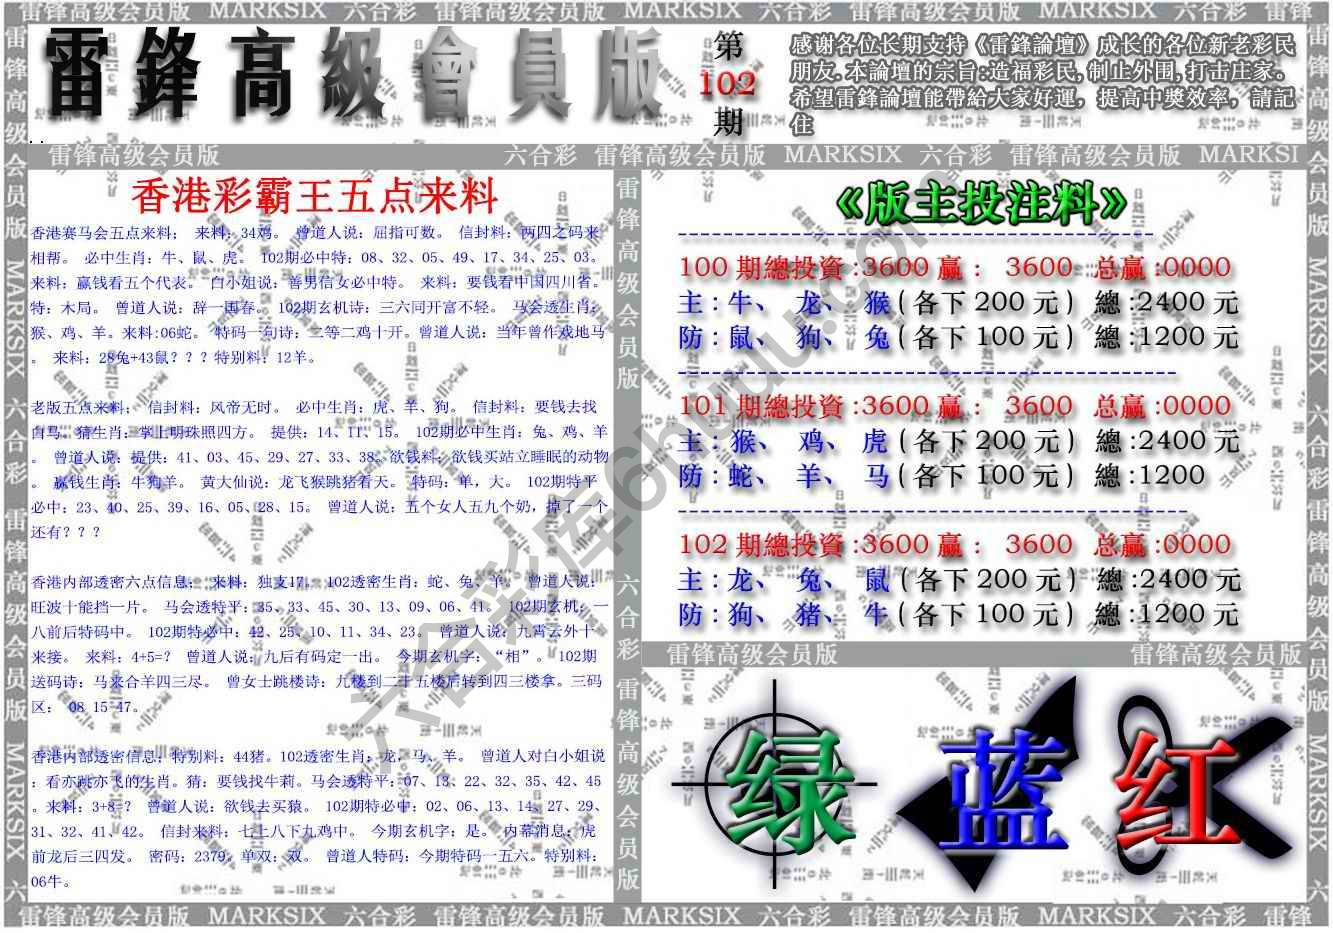 雷锋高级会员版 MARKSIX 六合彩 雷锋高级会员版 MARKSIX 六合彩 雷锋高级会员版 MARKSIX 六合彩 雷锋
雷鋒高級會員版
第
102
期
感谢各位长期支持《雷鋒論壇》成长的各位新老彩民
朋友.本論壇的宗旨:造福彩民,制止外围,打击庄家。
希望雷鋒論壇能帶給大家好運，提高中獎效率，請記
住
雷锋高级会员版 六合彩 雷锋高级会员版 MARKSIX 六合彩 雷锋高级会员版 MARKSI
香港彩霸王五点来料
香港赛马会五点来料； 来料：34鸡。 曾道人说：屈指可数。 信封料：两四之码来
相帮。 必中生肖：牛、鼠、虎。 102期必中特：08、32、05、49、17、34、25、03。
来料：赢钱看五个代表。 白小姐说：善男信女必中特。 来料：要钱看中国四川省。
特：木局。 曾道人说：辞一国春。 102期玄机诗：三六同开富不轻。 马会透生肖：
猴、鸡、羊。来料:06蛇。 特码一句诗：二等二鸡十开。曾道人说：当年曾作戏地马
。 来料：28兔+43鼠？？？特别料：12羊。
老版五点来料； 信封料：风帝无时。 必中生肖：虎、羊、狗。 信封料：要钱去找
白马。猜生肖：掌上明珠照四方。 提供：14、11、15。 102期必中生肖：兔、鸡、羊
。 曾道人说：提供：41、03、45、29、27、33、38。欲钱料：欲钱买站立睡眠的动物
。 赢钱生肖：牛狗羊。 黄大仙说：龙飞猴跳猪看天。 特码：单，大。 102期特平
必中：23、40、25、39、16、05、28、15。 曾道人说：五个女人五九个奶，掉了一个
还有？？？
香港内部透密六点信息； 来料：独支17。 102透密生肖：蛇、兔、羊。 曾道人说：
旺波十能挡一片。 马会透特平：35、33、45、30、13、09、06、41。 102期玄机：一
八前后特码中。 102期特必中：42、25、10、11、34、23。 曾道人说：九宵云外十
来接。 来料：4+5=？ 曾道人说：九后有码定一出。 今期玄机字：“相”。 102期
送码诗：马来合羊四三尽。 曾女士跳楼诗：九楼到二十五楼后转到四三楼拿。三码
区： 08 15 47。
香港内部透密信息；特别料：44猪。102透密生肖：龙、马、羊。 曾道人对白小姐说
：看亦跳亦飞的生肖。猜：要钱找牛莉。马会透特平：07、13、22、32、35、42、45
。来料：3+8=？ 曾道人说：欲钱去买猿。 102期特必中：02、06、13、14、27、29、
31、32、41、42。 信封来料：七上八下九鸡中。 今期玄机字：是。 内幕消息：虎
前龙后三四发。 密码：2379。单双：双。 曾道人特码：今期特码一五六。特别料：
06牛。
《版主投注料》
100期總投資:3600 赢： 3600 总赢:0000
主:牛、 龙、 猴(各下200元) 總:2400元
防:鼠、 狗、 兔(各下100元) 總:1200元
101期總投資:3600 赢： 3600 总赢:0000
主:猴、 鸡、 虎(各下200元) 總:2400元
防:蛇、 羊、 马(各下100元) 總:1200
102期總投資:3600 赢： 3600 总赢:0000
主:龙、 兔、 鼠(各下200元) 總:2400元
防:狗、 猪、 牛(各下100元) 總:1200元
雷锋高级会员版 雷锋高级会员版
绿 蓝 红
雷锋高级会员版 MARKSIX 六合彩 雷锋高级会员版 MARKSIX 六合彩 雷锋高级会员版 MARKSIX 六合彩 雷锋